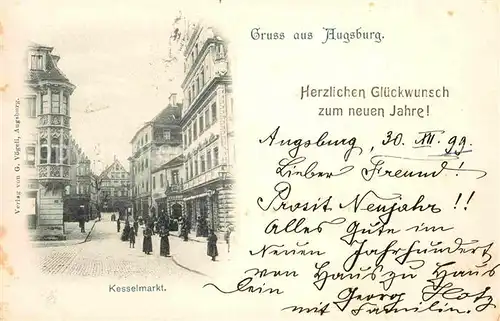 Gruss aus Augsburg.
Herzlichen Glückwunsch
zum neuen Jahre!
Verlag von G. Vögeli, Augsburg.
Kesselmarkt.
Augsburg, 30. XII. 99.
Lieber Freund!
Prosit Neujahr!!
Alles Gute im
Neuen Jahrhundert
von Haus zu Haus
Dein Georg
mit Familie.